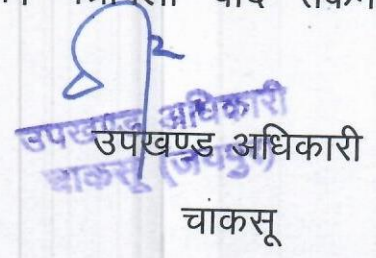 उपखण्ड अधिकारी
चाकसू (जयपुर)
उपखण्ड अधिकारी
चाकसू